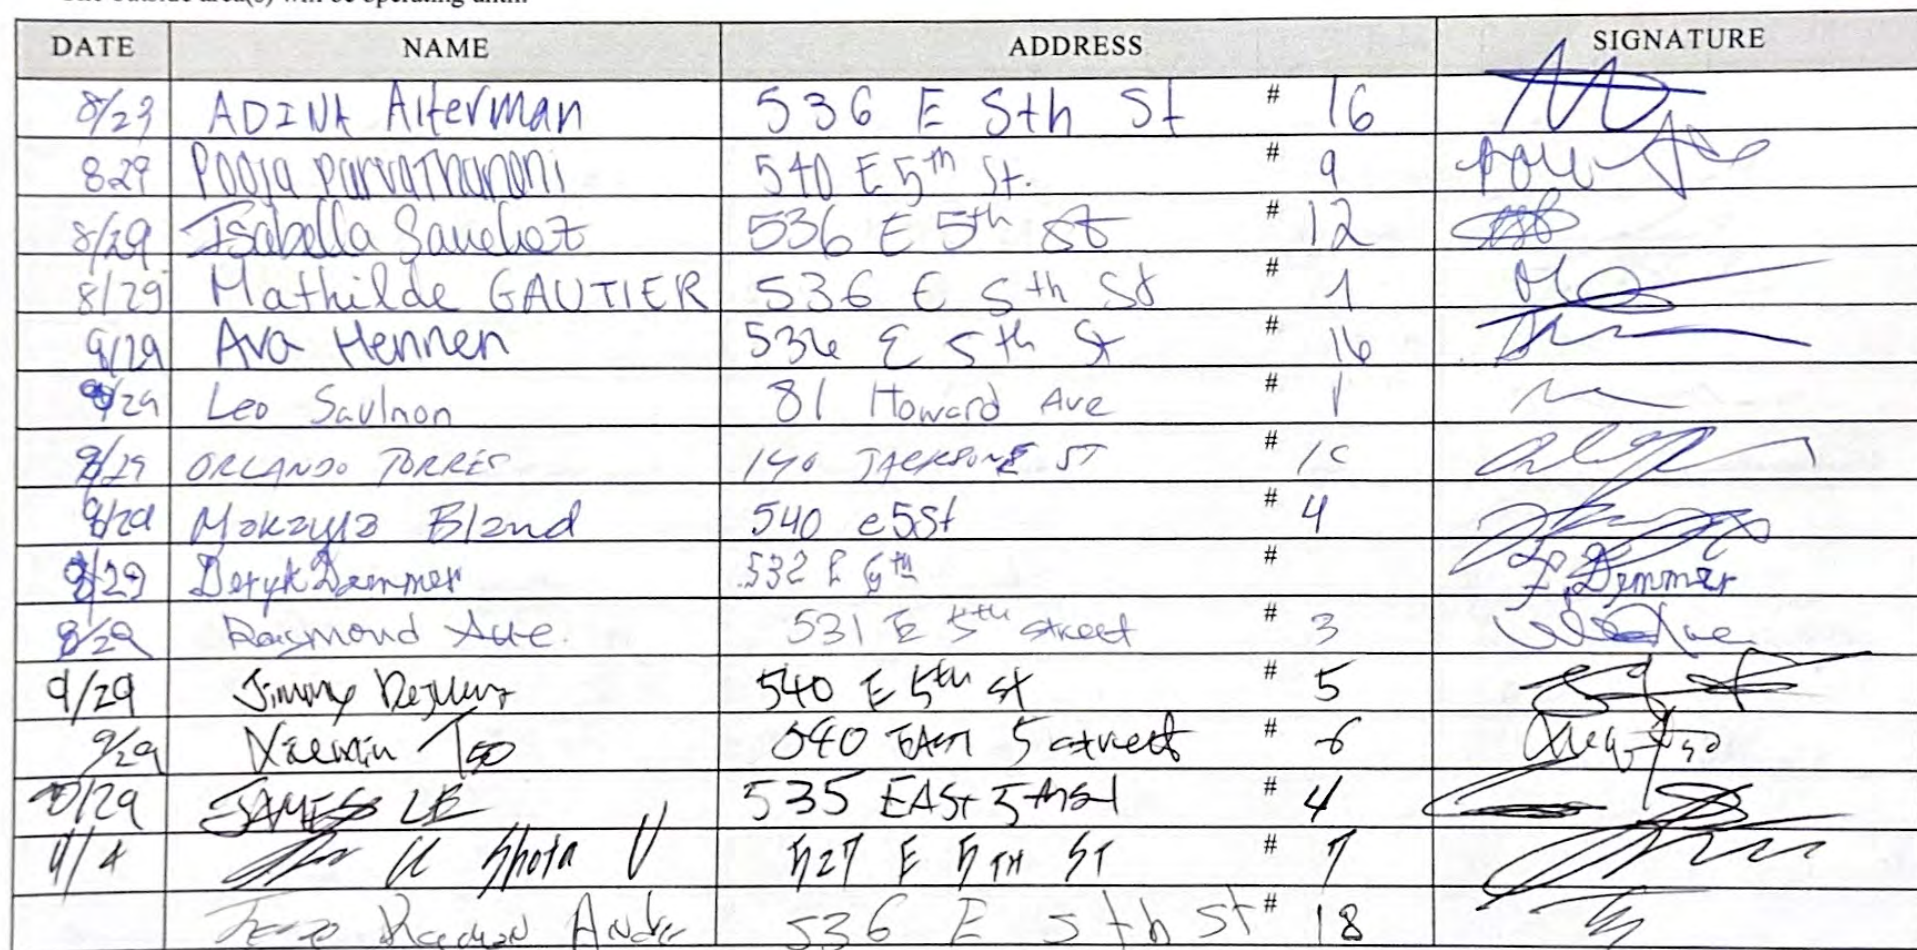 DATE NAME ADDRESS SIGNATURE
8/23 ADINA Alterman 536 E 5th St # 16
829 Pooja parvathanoni 540 E 5th St. # 9
8/29 Isabella Sanchez 536 E 5th St # 12
8/29 Mathilde GAUTIER 536 E 5th St # 1
9/29 Ava Hennen 536 E 5th St # 16
8/29 Leo Saulnon 81 Howard Ave # 1
8/29 ORLANDO TORRES ST #
8/29 Makayla Bland 540 e5St # 4
8/29 Deryk Demmer 532 E 6th # Demmer
8/29 Raymond 531 E 5th street # 3
9/29 Jimmy 540 E 5th st # 5
9/29 540 EAST 5 street # 6
8/29 JAMES LE 535 EAST 5th st # 4
9/4 Shota U 527 E 5TH ST # 7
536 E 5th St # 18